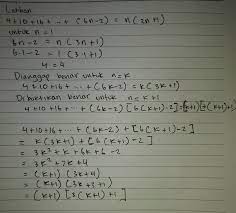 Latihan
4+10+16+...+(6n-2) = n(3n+1)
untuk n=1
6n-2 = n(3n+1)
6.1-2 = 1(3.1+1)
4 = 4
Dianggap benar untuk n=k
4+10+16+...+(6k-2) = k(3k+1)
Dibuktikan benar untuk n=k+1
4+10+16+...+(6k-2)[6(k+1)-2]=(k+1)
4+10+16+...+(6k-2)+[6(k+1)-2]
= k(3k+1)+[6(k+1)-2]
= 3k²+k+6k+6-2
= 3k²+7k+4
= (k+1)(3k+4)
= (k+1)(3k+3+1)
= (k+1)[3(k+1)+1]